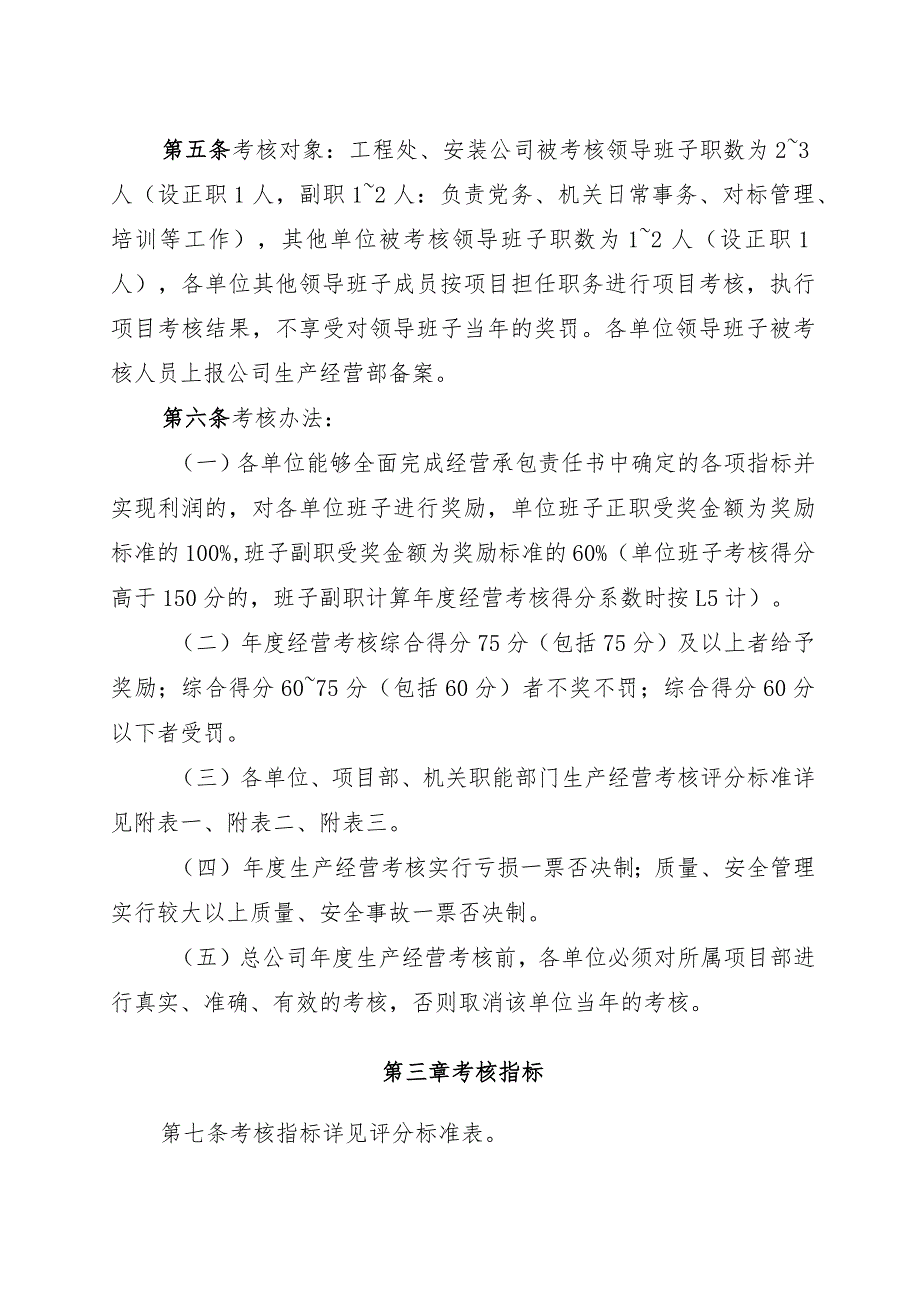 第五条考核对象：工程处、安装公司被考核领导班子职数为2~3
人（设正职1人，副职1~2人：负责党务、机关日常事务、对标管理、
培训等工作），其他单位被考核领导班子职数为1~2人（设正职1
人），各单位其他领导班子成员按项目担任职务进行项目考核，执行
项目考核结果，不享受对领导班子当年的奖罚。各单位领导班子被考
核人员上报公司生产经营部备案。
第六条考核办法：
（一）各单位能够全面完成经营承包责任书中确定的各项指标并
实现利润的，对各单位班子进行奖励，单位班子正职受奖金额为奖励
标准的100%,班子副职受奖金额为奖励标准的60%（单位班子考核得分
高于150分的，班子副职计算年度经营考核得分系数时按L5计）。
（二）年度经营考核综合得分75分（包括75分）及以上者给予
奖励；综合得分60~75分（包括60分）者不奖不罚；综合得分60分
以下者受罚。
（三）各单位、项目部、机关职能部门生产经营考核评分标准详
见附表一、附表二、附表三。
（四）年度生产经营考核实行亏损一票否决制；质量、安全管理
实行较大以上质量、安全事故一票否决制。
（五）总公司年度生产经营考核前，各单位必须对所属项目部进
行真实、准确、有效的考核，否则取消该单位当年的考核。
第三章考核指标
第七条考核指标详见评分标准表。